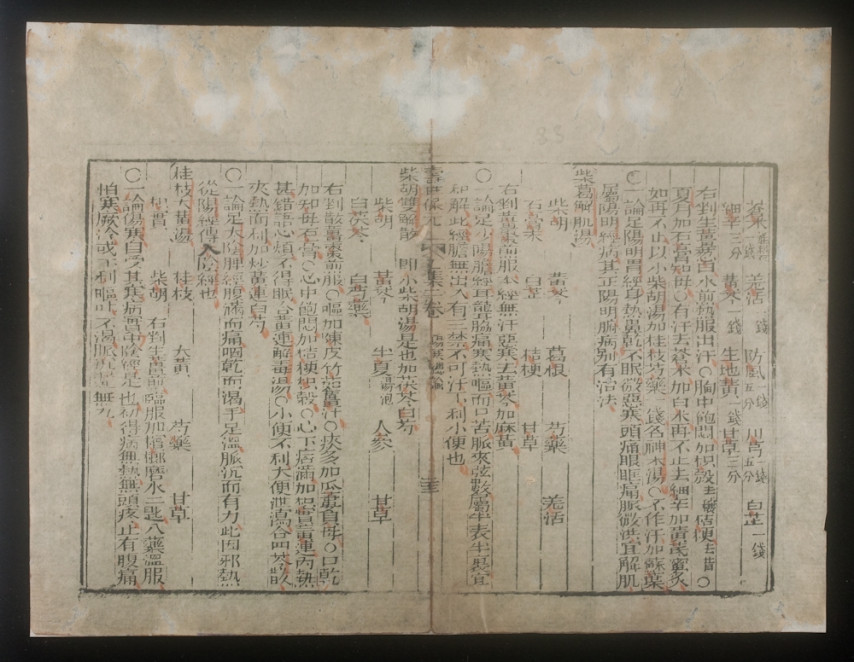 蒼朮 羌活 防風 川芎 白芷一錢
細辛三分 黃芩一錢 生地黃一錢 甘草三分
右剉薑棗 水煎熱服出汗○胸中飽悶加枳殼 桔梗 ○
夏月加石膏知母○有汗去蒼朮加白朮再不止去細辛加黃芪
如再不止以小柴胡湯加桂枝芍藥一錢名神朮湯○不作汗加蘇葉
○一論足陽明胃經身熱鼻乾不眠微惡寒頭痛眼眶痛脈微洪宜解肌
屬陽明經病其正陽明腑病別有治法
柴葛解肌湯
柴胡 黃芩 葛根 芍藥 羌活
石膏 白芷 桔梗 甘草
右剉薑棗煎服本經無汗惡寒去黃芩加麻黃
○一論足少陽膽經耳聾脇痛寒熱嘔而口苦脈來弦數屬半表半裏宜
和解此經膽無出入有三禁不可汗下利小便也
壽世保元 集 卷
柴胡雙解散 即小柴胡湯是也加茯苓白芍
柴胡 黃芩 半夏 人參 甘草
白茯苓 白芍藥
右剉散薑棗煎服○嘔加陳皮竹茹薑汁○痰多加瓜蔞貝母○口乾
加知母石膏○心中飽悶加桔梗枳殼○心下痞滿加枳實黃連內熱
甚錯語心煩不得眠合黃連解毒湯○小便不利大便泄瀉合四苓散
夾熱而利加炒黃連白芍
○一論足太陰脾經腹滿而痛咽乾而渴手足溫脈沉而有力此因邪熱
從陽經傳入陰經也
桂枝大黃湯 桂枝 大黃 芍藥 甘草
枳實 柴胡 右剉生薑煎臨服加檳榔磨水二匙入藥溫服
○一論傷寒自 其真病 中陰經是也初得病無熱無頭疼止有腹痛
怕寒厥冷或下利嘔吐不渴脈沉遲無力